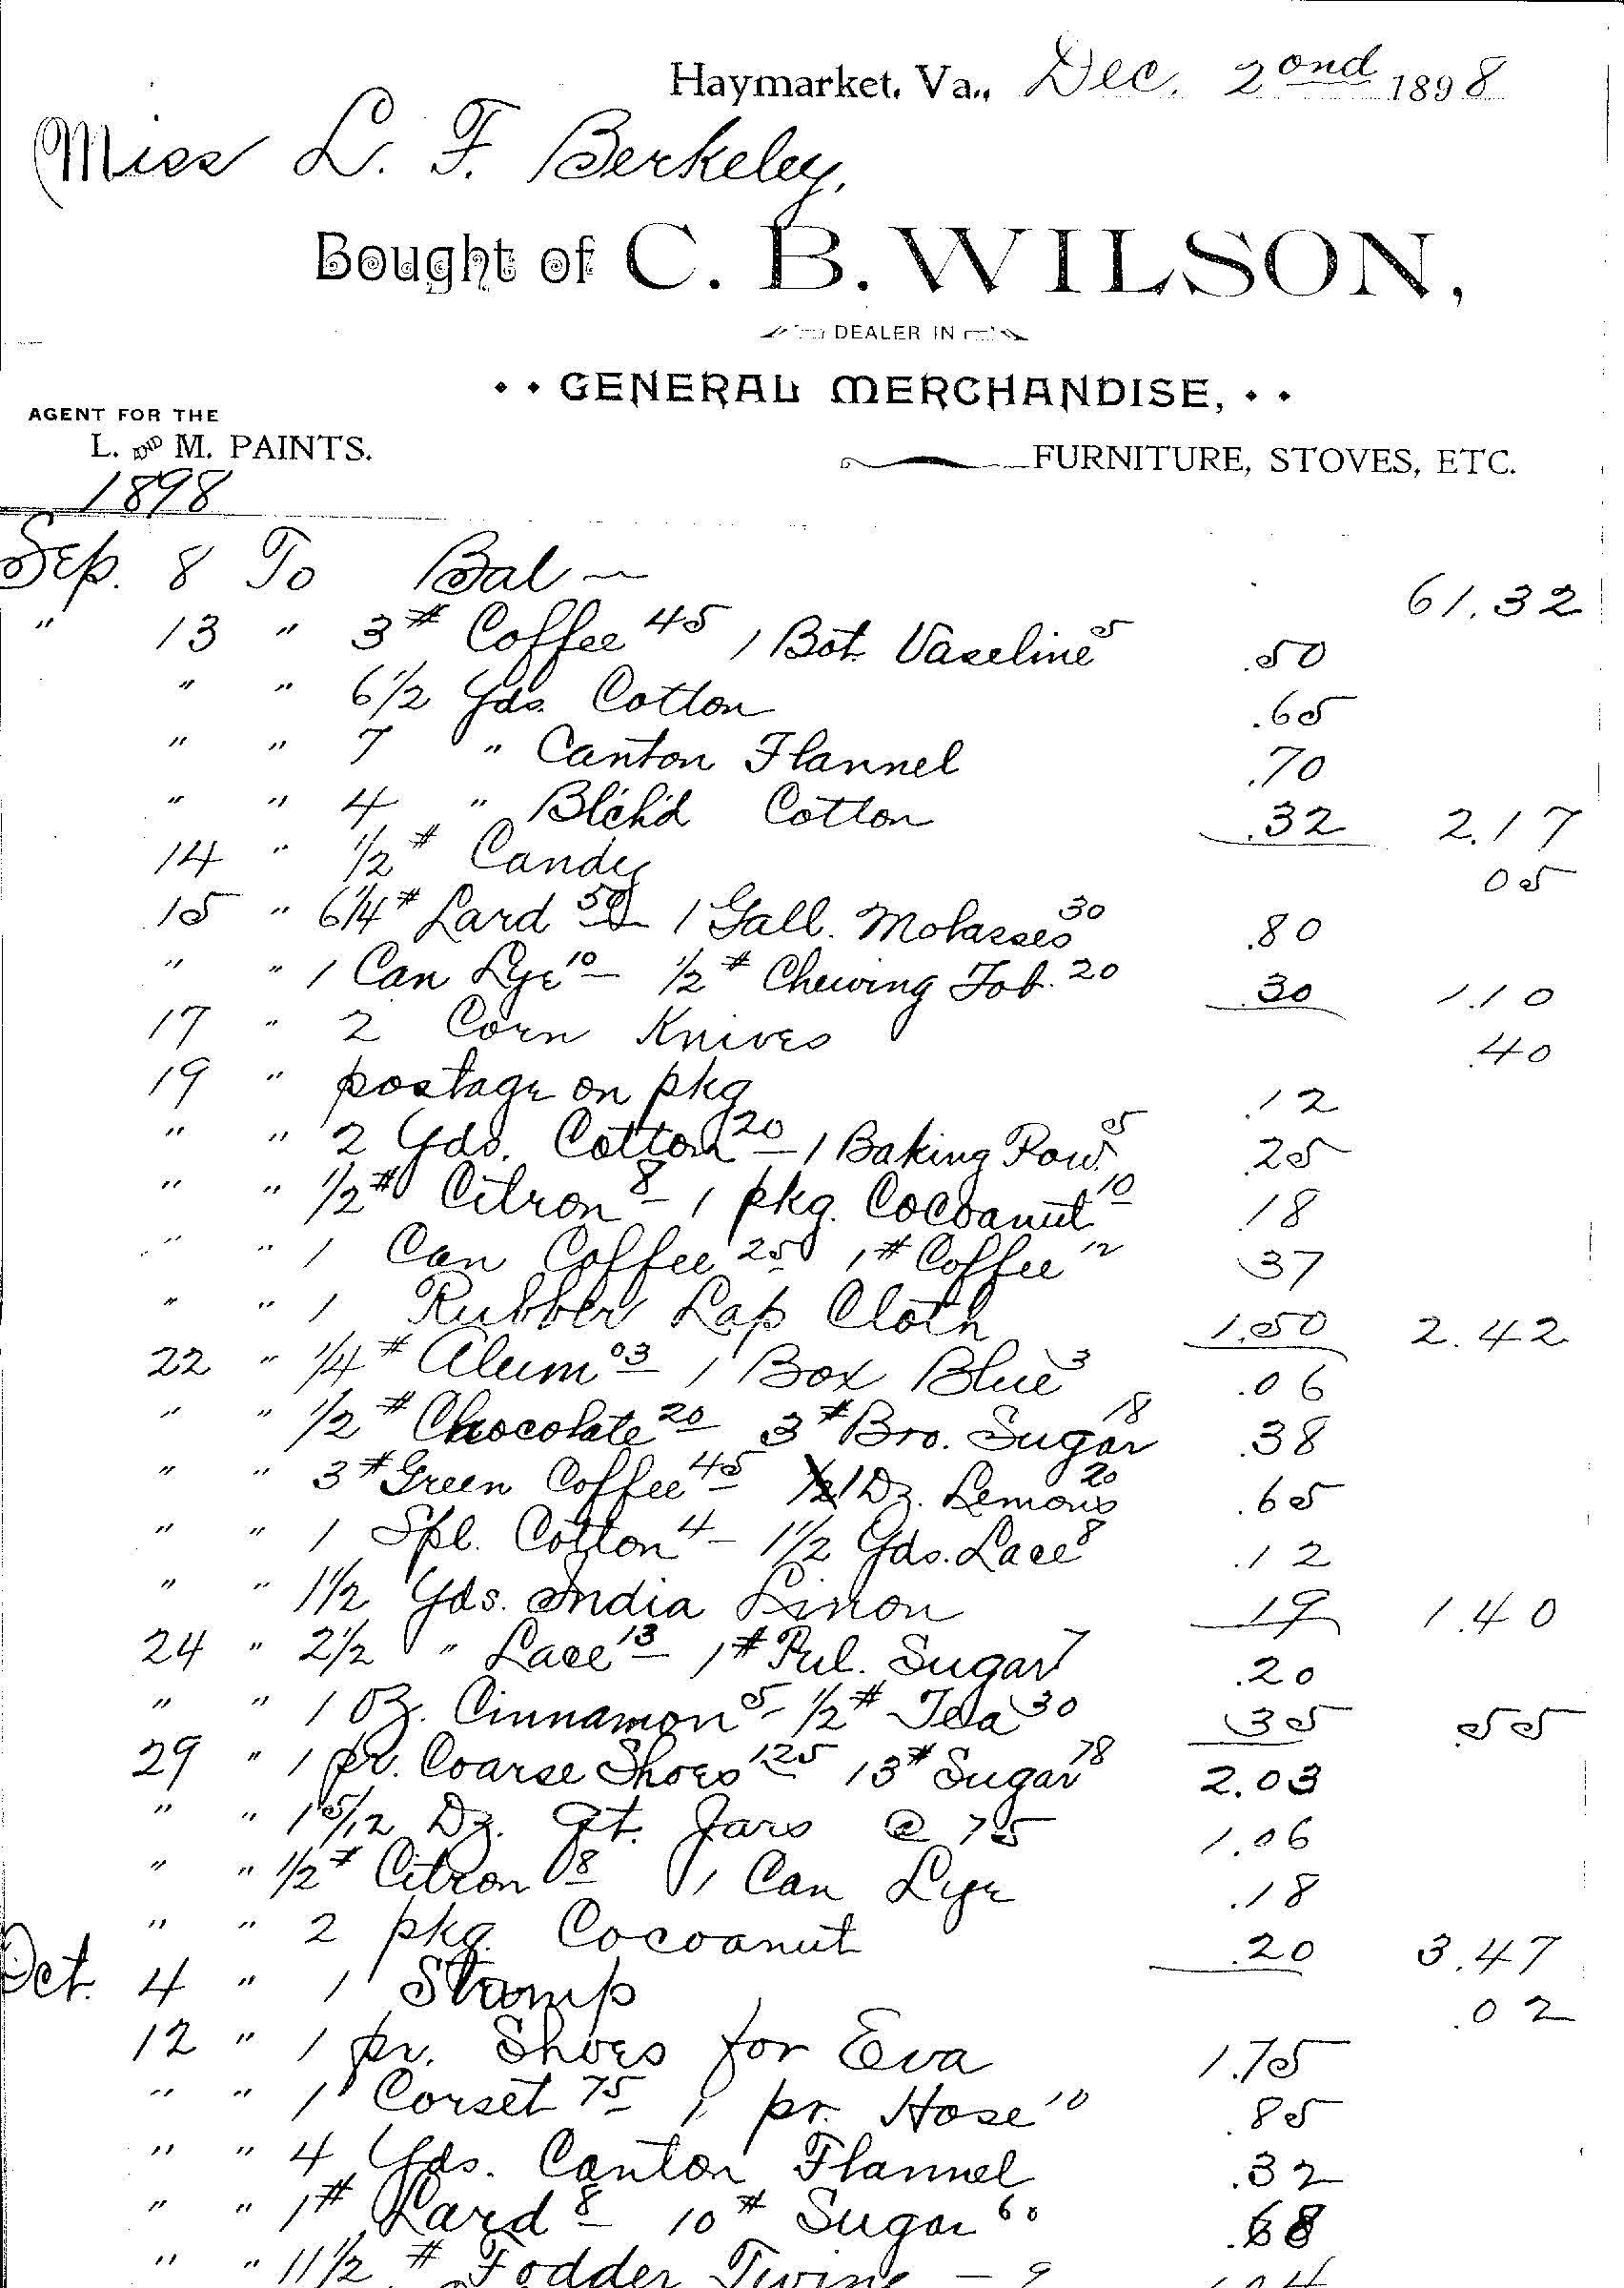 Haymarket, Va., Dec. 2ond 1898
Miss L. F. Berkeley,
Bought of C. B. WILSON,
DEALER IN
GENERAL MERCHANDISE,
AGENT FOR THE
L. AND M. PAINTS.
FURNITURE, STOVES, ETC.
1898
Sep. 8 To Bal — 61.32
" 13 " 3# Coffee 45 1 Bot. Vaseline 5 .50
" " 6 1/2 Yds. Cotton .65
" " 7 " Canton Flannel .70
" " 4 " Blch'd Cotton .32 2.17
14 " 1/2# Candy 05
15 " 6 1/4# Lard 50 1 Gall. Molasses 30 .80
" " 1 Can Lye 10 — 1/2# Chewing Tob. 20 .30 1.10
17 " 2 Corn Knives .40
19 " postage on pkg .12
" " 2 Yds. Cotton 20 — 1 Baking Pow. 5 .25
" " 1/2# Citron 8 — 1 pkg. Cocoanut 10 .18
" " 1 Can Coffee 25 1# Coffee 12 .37
" " 1 Rubber Lap Cloth 1.50 2.42
22 " 1/4# Alum 03 — 1 Box Blue 3 .06
" " 1/2# Chocolate 20 3# Bro. Sugar 18 .38
" " 3# Green Coffee 45 1 Dz. Lemons 20 .65
" " 1 Spl. Cotton 4 — 1 1/2 Yds. Lace 8 .12
" " 1 1/2 Yds. India Linon 19 1.40
24 " 2 1/2 " Lace 13 — 1# Pul. Sugar 7 .20
" " 1 Oz. Cinnamon 5 - 1/2# Tea 30 35 .55
29 " 1 pr. Coarse Shoes 125 13# Sugar 78 2.03
" " 1 5/12 Dz. qt. Jars @ 75 1.06
" " 1/2# Citron 8 1 Can Lye .18
" " 2 pkg. Cocoanut .20 3.47
Oct. 4 " 1 Stamp .02
12 " 1 pr. Shoes for Eva 1.75
" " 1 Corset 75 1 pr. Hose 10 .85
" " 4 Yds. Canton Flannel .32
" " 1# Lard 8 — 10# Sugar 60 .68
" " 11 1/2# Fodder Twine — 9 1.04